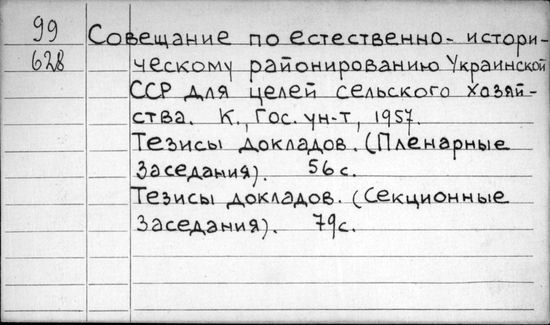 99 Совещание по естественно-истори-
628 ческому районированию Украинской
ССР для целей сельского хозяй-
ства. К., Гос. ун-т, 1957.
Тезисы докладов. (Пленарные
заседания). 56 с.
Тезисы докладов. (Секционные
заседания). 79 с.